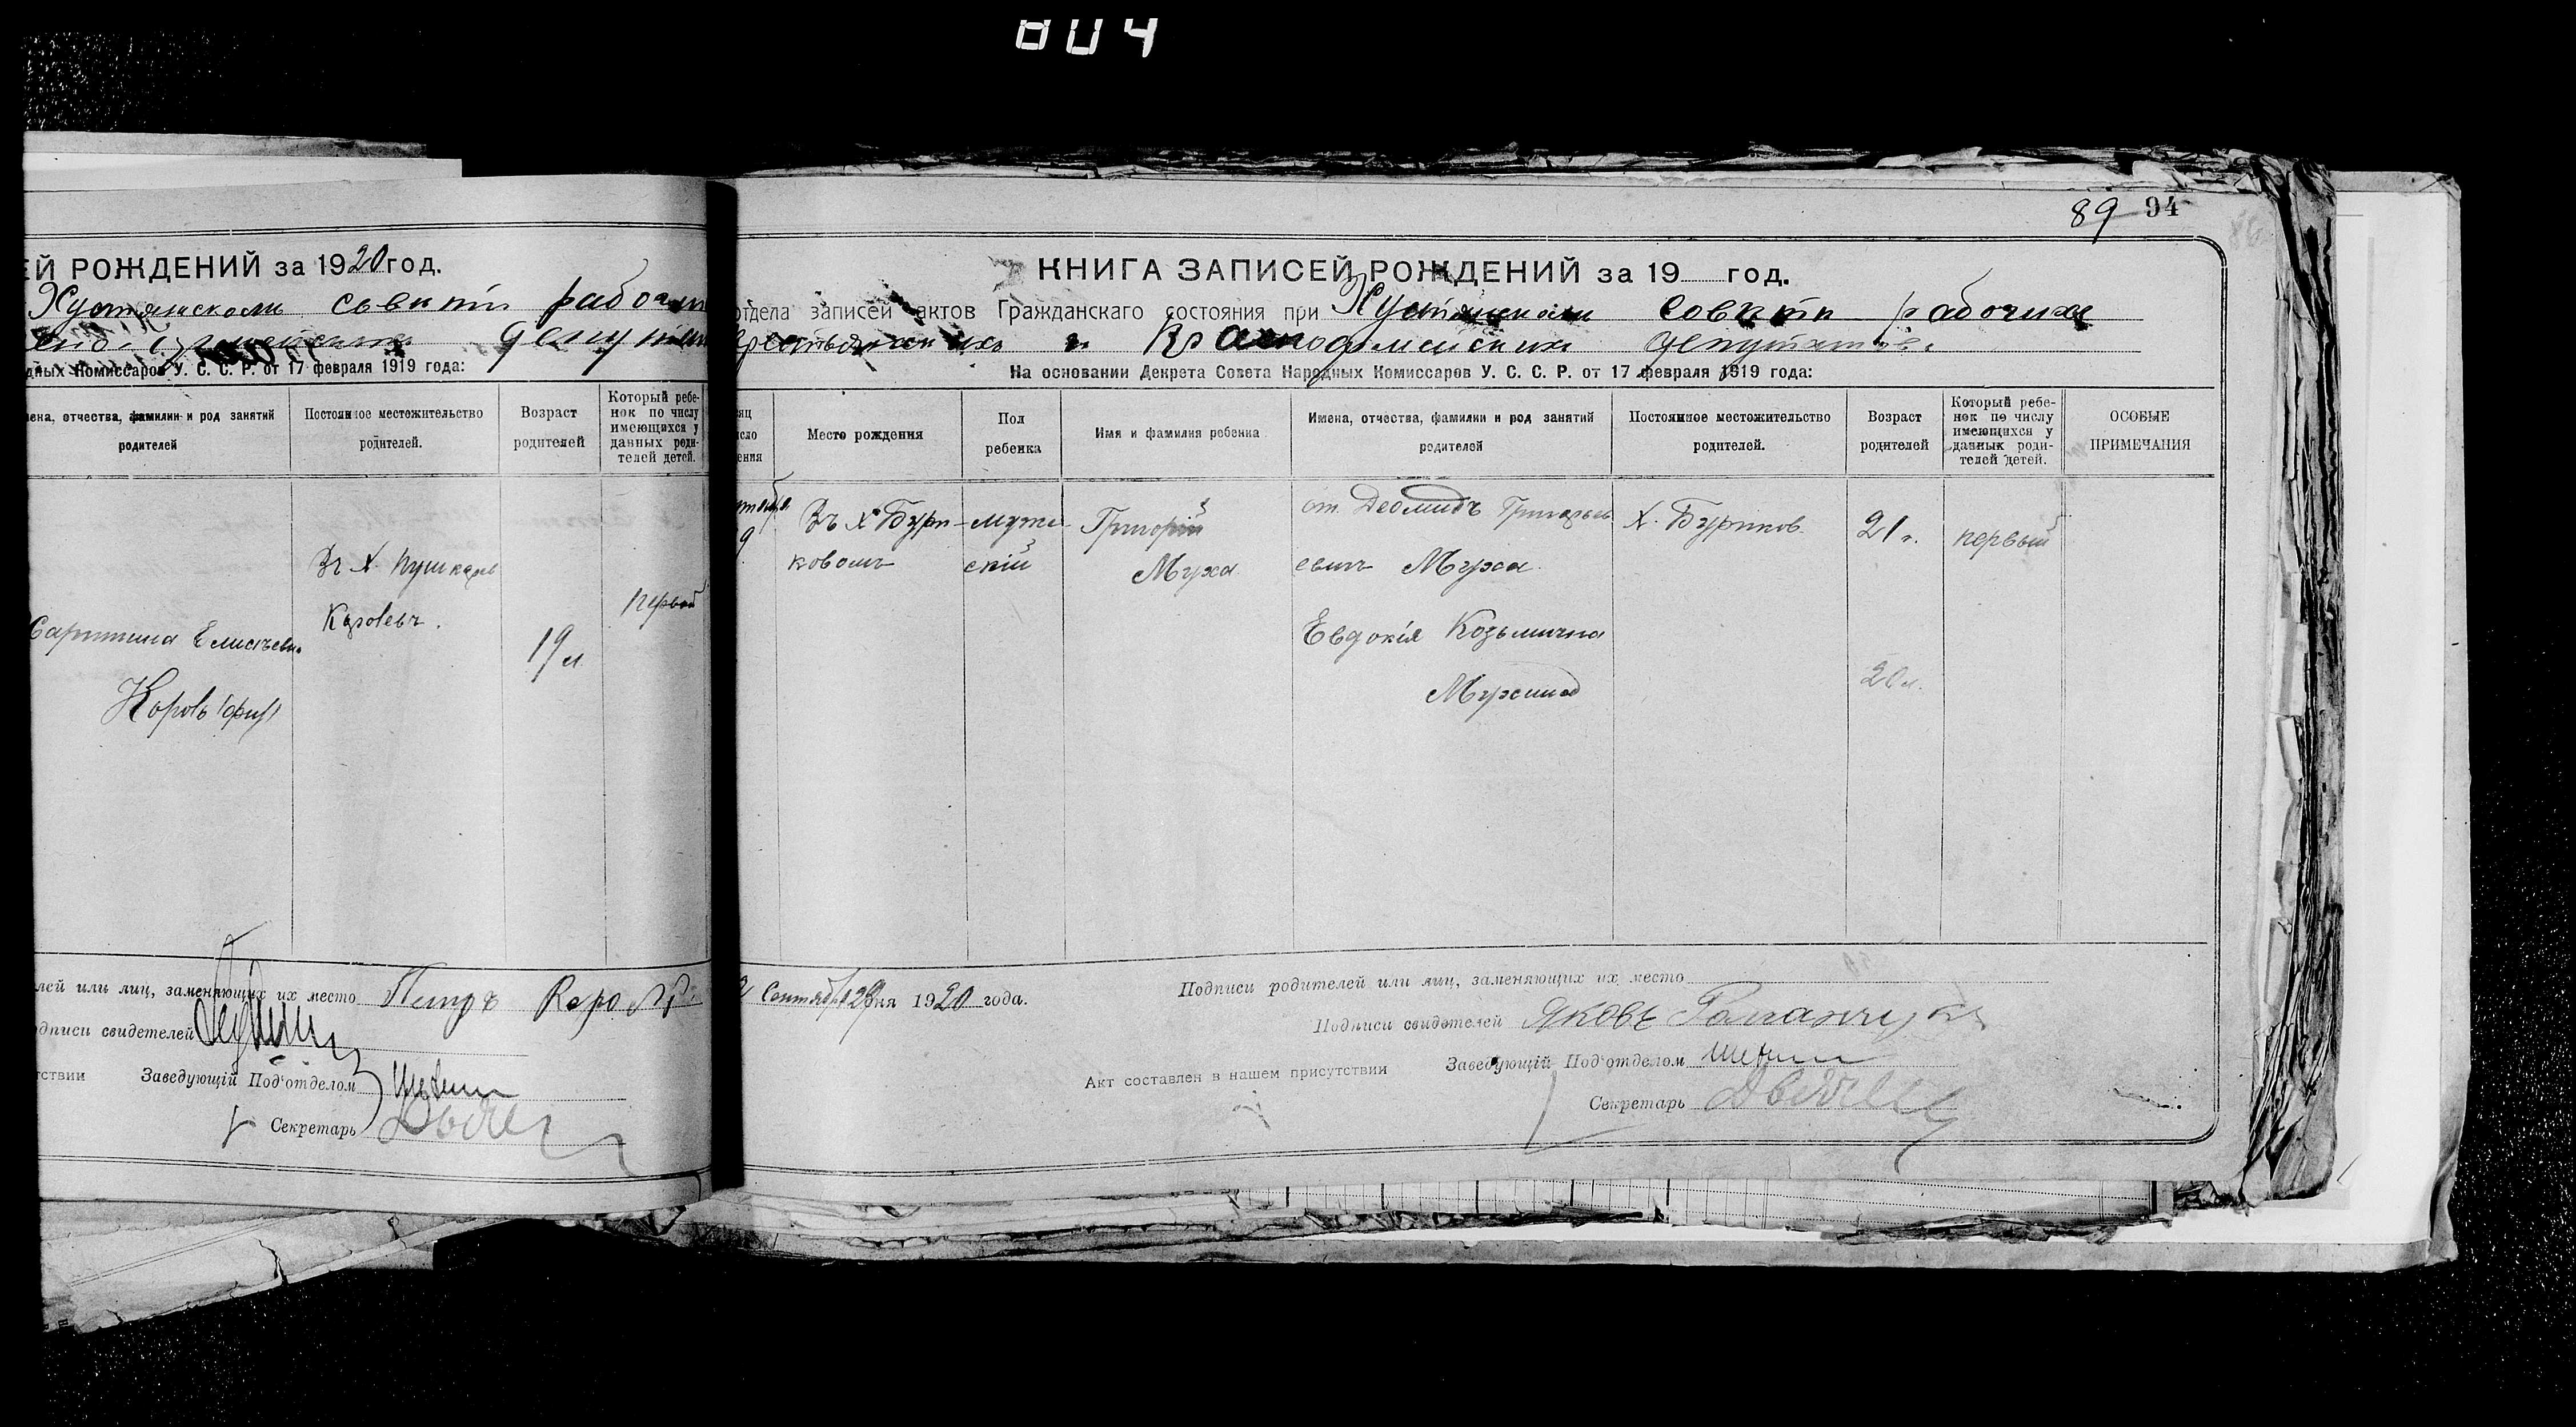 804
ЕЙ РОЖДЕНИЙ за 1920 год.
Хустянском совѣтѣ рабочих
депутат
дных Комиссаров У. С. С. Р. от 17 февраля 1919 года:
ена, отчества, фамилии и род занятий родителей
Постоянное местожительство родителей.
Возраст родителей
Который ребенок по числу имеющихся у данных родителей детей.
Въ х. Пушкарев
Каровевъ.
Елисѣевн
19 л
первый
лей или лиц, заменяющих их место Петръ
одписи свидетелей
тствии Заведующій Под'отделом
Секретарь
89 94
КНИГА ЗАПИСЕЙ РОЖДЕНИЙ за 19 год.
отдела записей актов Гражданскаго состояния при Хустянском совѣтѣ рабочихъ
крестьянскихъ и красноармейских депутатов.
На основании Декрета Совета Народных Комиссаров У. С. С. Р. от 17 февраля 1919 года:
яц
сло
ения
Место рождения
Пол ребенка
Имя и фамилия ребенка
Имена, отчества, фамилии и род занятий родителей
Постоянное местожительство родителей.
Возраст родителей
Который ребенок по числу имеющихся у данных родителей детей.
ОСОБЫЕ ПРИМЕЧАНИЯ
9
Въ х. Бури-
ковомъ
муж-
скій
Григорій
Муха
от. Деомидъ Григорьев
евичъ Муха.
Евдокія Козьмична
Мухина
х. Буриков
21 г.
20 л.
первый
Сентября 29 дня 1920 года.
Подписи родителей или лиц, заменяющих их место
Подписи свидетелей Яковъ Романчукъ
Акт составлен в нашем присутствии Заведующій Под'отделом
Секретарь